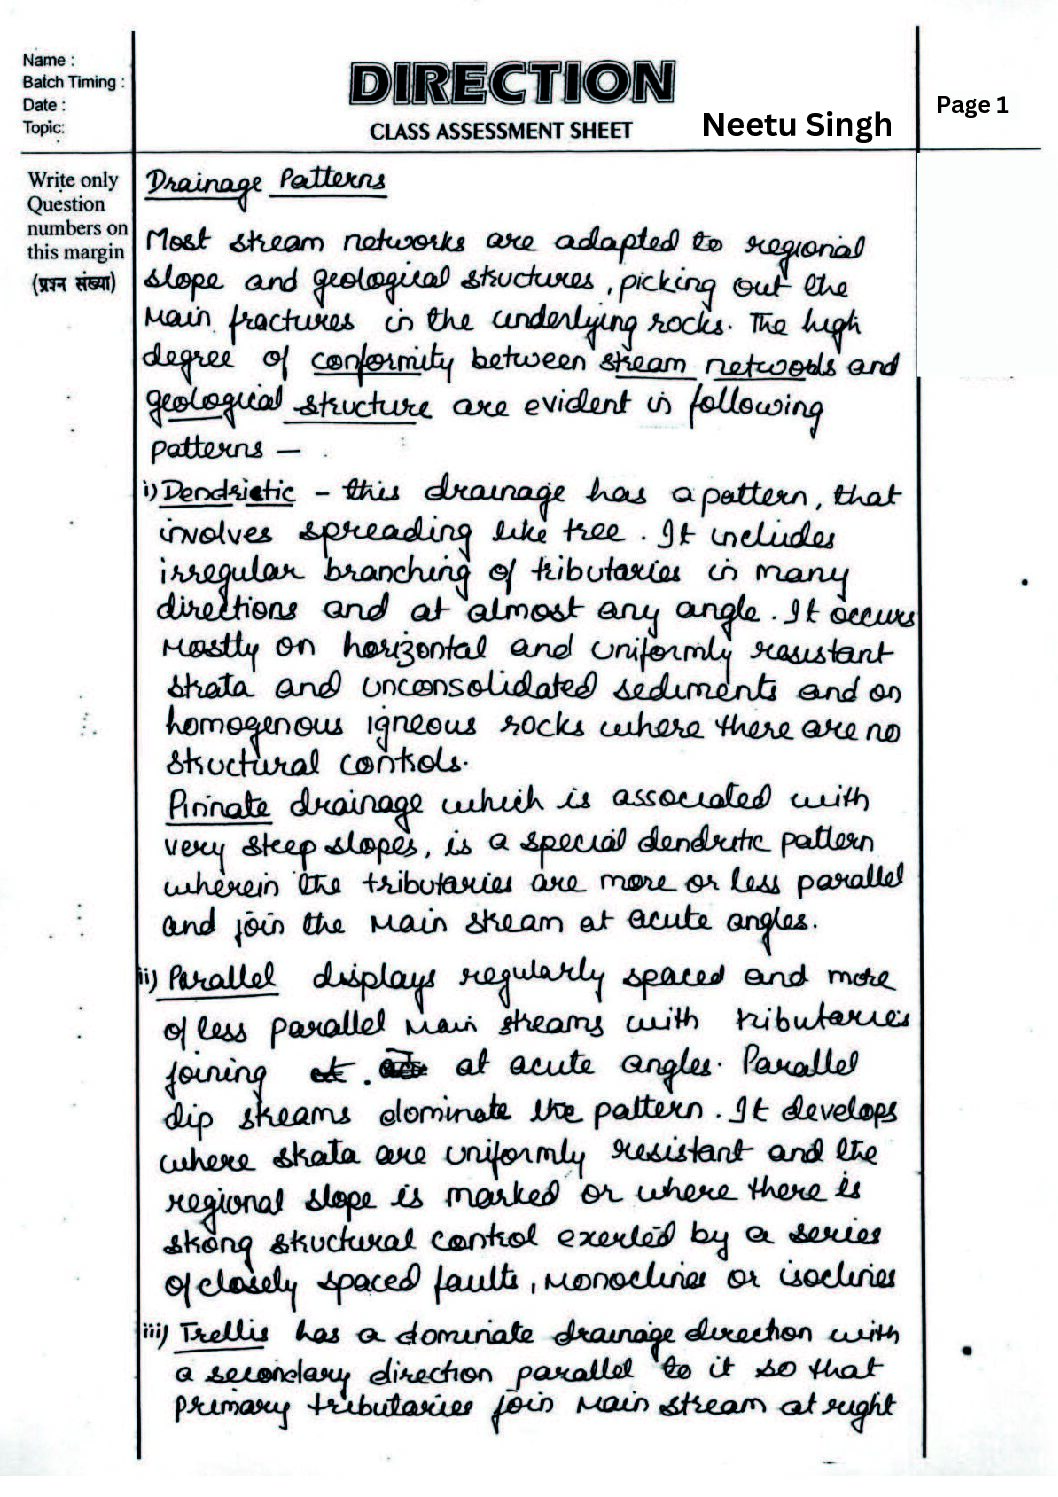 Name :
Batch Timing :
Date :
Topic:
DIRECTION
CLASS ASSESSMENT SHEET
Neetu Singh
Page 1
Write only
Question
numbers on
this margin
(प्रश्न संख्या)
Drainage Patterns
Most stream networks are adapted to regional
slope and geological structures, picking out the
main fractures in the underlying rocks. The high
degree of conformity between stream networks and
geological structure are evident in following
patterns –
i) Dendritic – this drainage has a pattern, that
involves spreading like tree. It includes
irregular branching of tributaries in many
directions and at almost any angle. It occurs
mostly on horizontal and uniformly resistant
strata and unconsolidated sediments and on
homogenous igneous rocks where there are no
structural controls.
Pinnate drainage which is associated with
very steep slopes, is a special dendritic pattern
wherein the tributaries are more or less parallel
and join the main stream at acute angles.
ii) Parallel displays regularly spaced and more
of less parallel main streams with tributaries
joining at acute angles. Parallel
dip streams dominate the pattern. It develops
where strata are uniformly resistant and the
regional slope is marked or where there is
strong structural control exerted by a series
of closely spaced faults, monoclines or isoclines
iii) Trellis has a dominate drainage direction with
a secondary direction parallel to it so that
primary tributaries join main stream at right